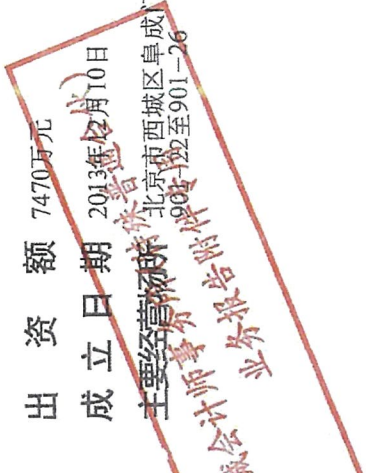 出资额 7470万元
成立日期 2013年12月10日
主要经营场所 北京市西城区阜成
901-22至901-26
会计师事务 特殊普通合伙)
业务报告附件专用